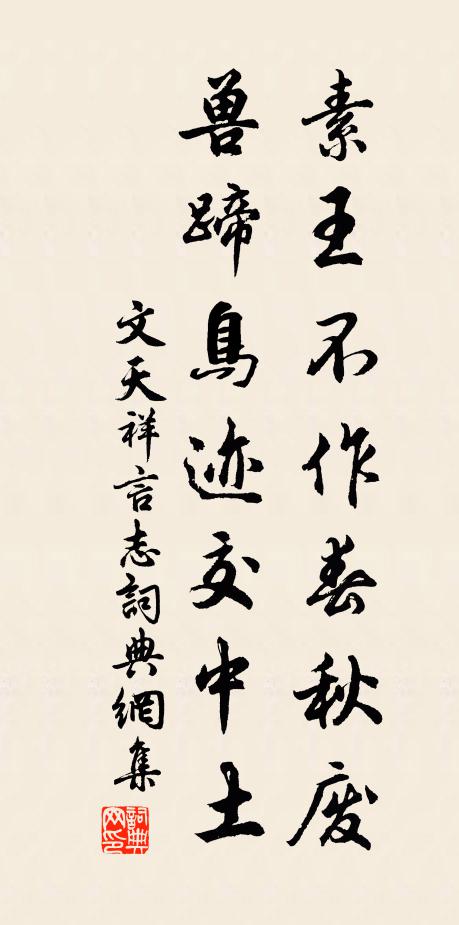 素王不作春秋废
兽蹄鳥迹交中土
文天祥言志詞典網集
詞典
网印